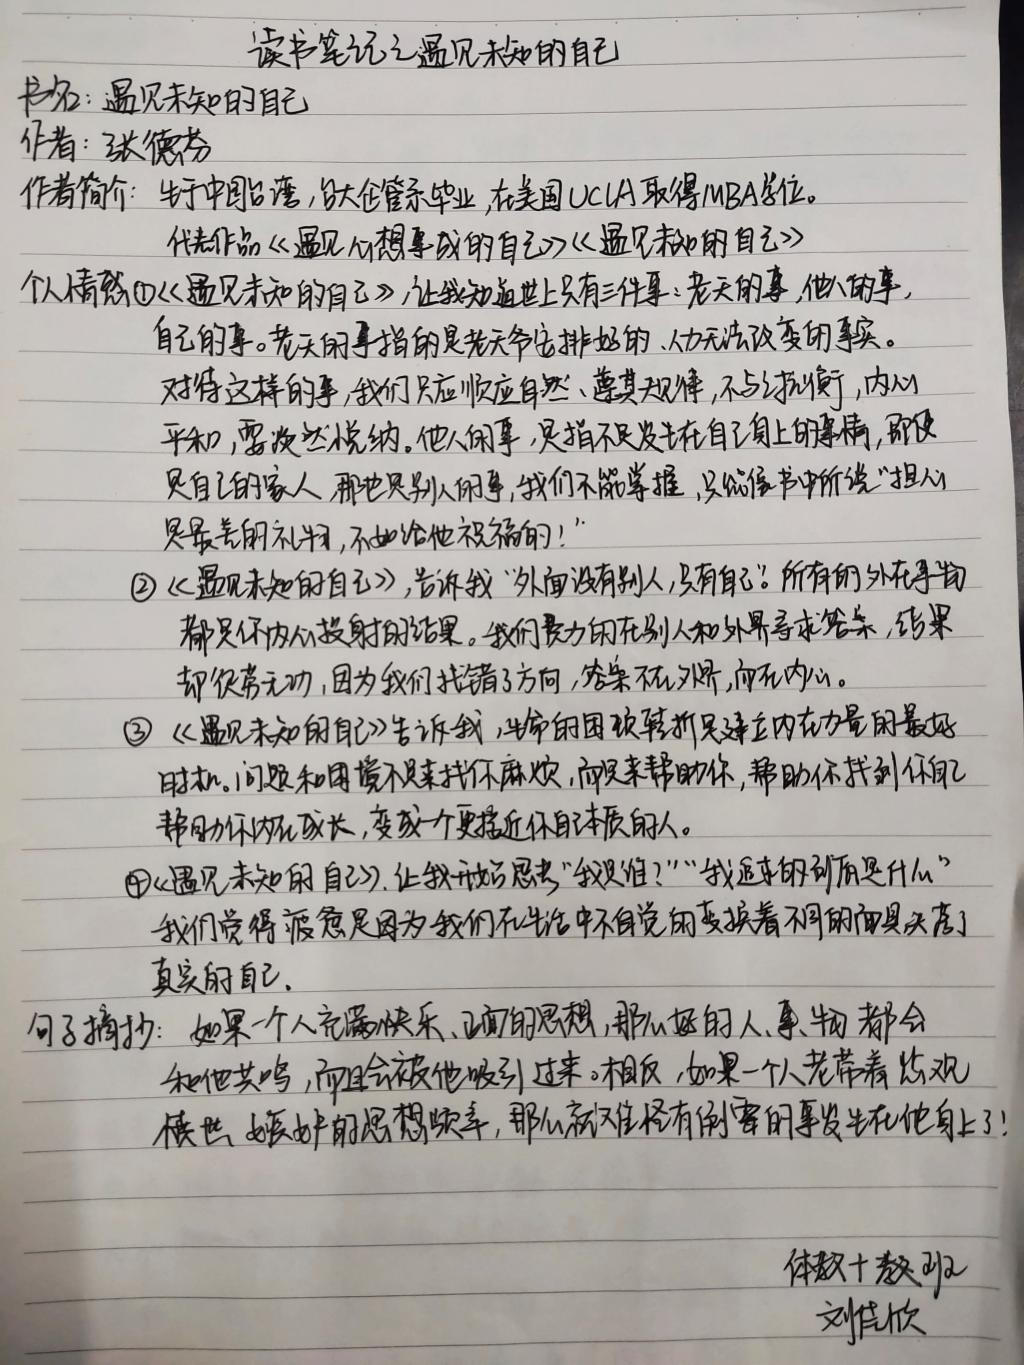 读书笔记之遇见未知的自己
书名：遇见未知的自己
作者：张德芬
作者简介：生于中国台湾，台大企管系毕业，在美国UCLA取得MBA学位。
代表作品《遇见心想事成的自己》《遇见未知的自己》
个人情感①《遇见未知的自己》，让我知道世上只有三件事：老天的事，他人的事，
自己的事。老天的事指的是老天爷安排好的、人力无法改变的事实。
对待这样的事，我们只应顺应自然、尊其规律，不与之抗衡，内心
平和，需欣然悦纳。他人的事，是指不是发生在自己身上的事情，即使
是自己的家人，那也是别人的事，我们不能掌握，只能像书中所说"担心
是最差的礼物，不如给他祝福的！"
②《遇见未知的自己》，告诉我"外面没有别人，只有自己"。所有的外在事物
都是你内心投射的结果。我们费力的在别人和外界寻求答案，结果
却徒劳无功，因为我们找错了方向，答案不在外界，而在内心。
③《遇见未知的自己》告诉我，生命的困顿转折是建立内在力量的最好
时机。问题和困境不是来找你麻烦，而是来帮助你，帮助你找到你自己
帮助你内在成长，变成一个更接近你自己本质的人。
④《遇见未知的自己》．让我开始思考"我是谁？""我追求的到底是什么"
我们觉得疲惫是因为我们在生活中不自觉的变换着不同的面具失落了
真实的自己．
句子摘抄：如果一个人充满快乐、正面的思想，那么好的人、事、物都会
和他共鸣，而且会被他吸引过来。相反，如果一个人老带着悲观
愤世 嫉妒的思想频率，那么就难怪有倒霉的事发生在他身上了！
体教十教班2
刘佳欣